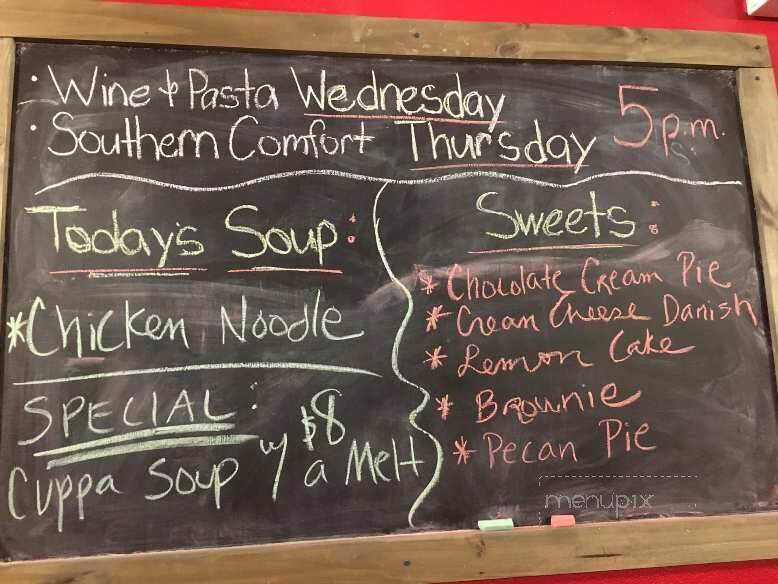 · Wine & Pasta Wednesday
· Southern Comfort Thursday
5 p.m.
Today's Soup:
* Chicken Noodle
SPECIAL: $8
Cuppa Soup w/ a Melt
Sweets:
* Chocolate Cream Pie
* Cream Cheese Danish
* Lemon Cake
* Brownie
* Pecan Pie
menupix